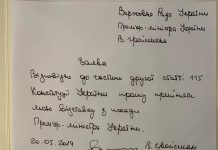 Верховна Рада України
Прем'єр-міністра України
В. Гройсмана
Заява
Відповідно до частини другої статті 115
Конституції України прошу прийняти
мою відставку з посади
Прем'єр-міністра України.
20.05.2019 В. Гройсман